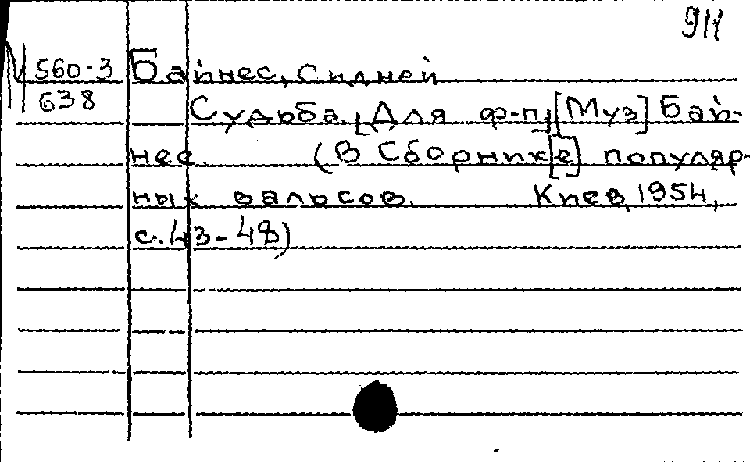 911
М 560-3 Байнес, Сидней
638
Судьба. [Для ф-п] [Муз] Бай-
нес. (В Сборник[е] популяр-
ных вальсов. Киев, 1954,
с. 43-48)